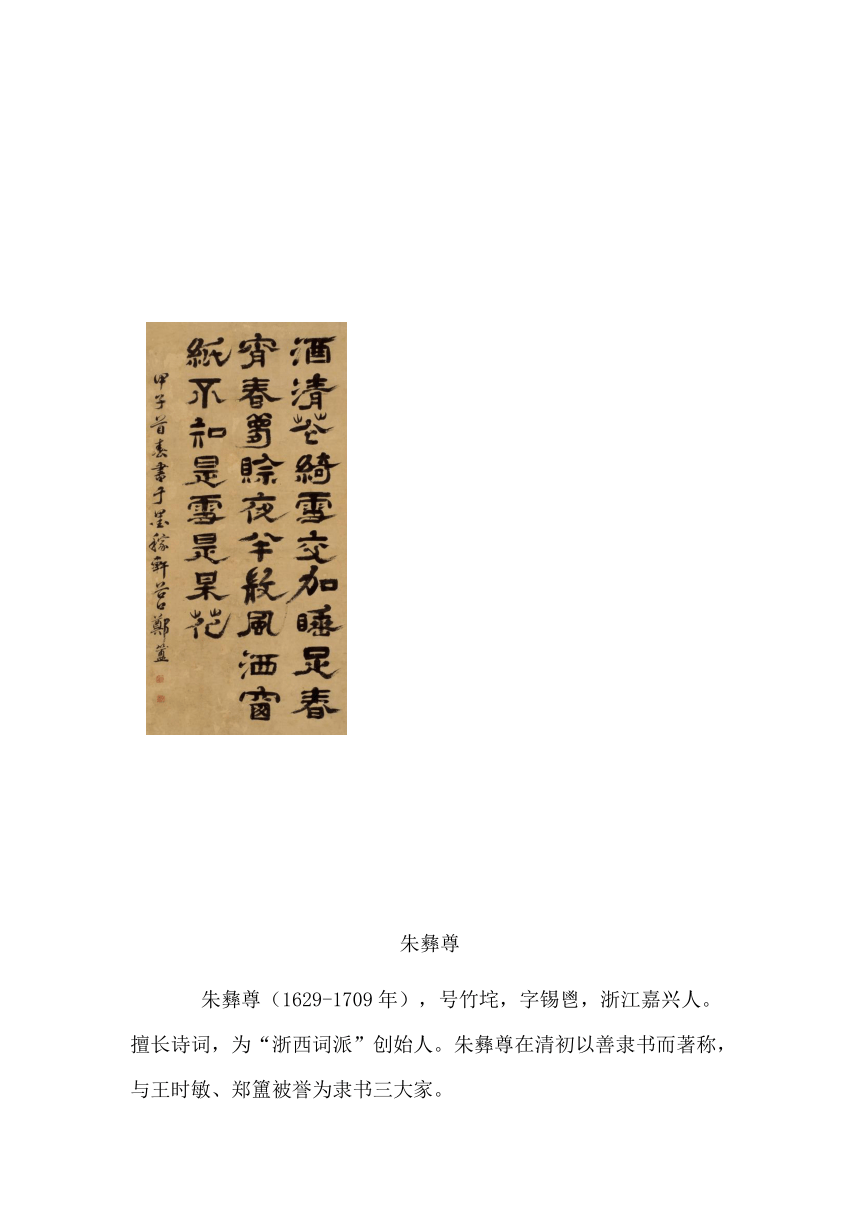 酒清花綺雪交加睡足春
宵春夢賒夜半散風洒窗
紙不知是雪是呆花
甲子首春書于墨稼軒谷口鄭簠
朱彝尊
朱彝尊（1629-1709年），号竹垞，字锡鬯，浙江嘉兴人。
擅长诗词，为“浙西词派”创始人。朱彝尊在清初以善隶书而著称，
与王时敏、郑簠被誉为隶书三大家。